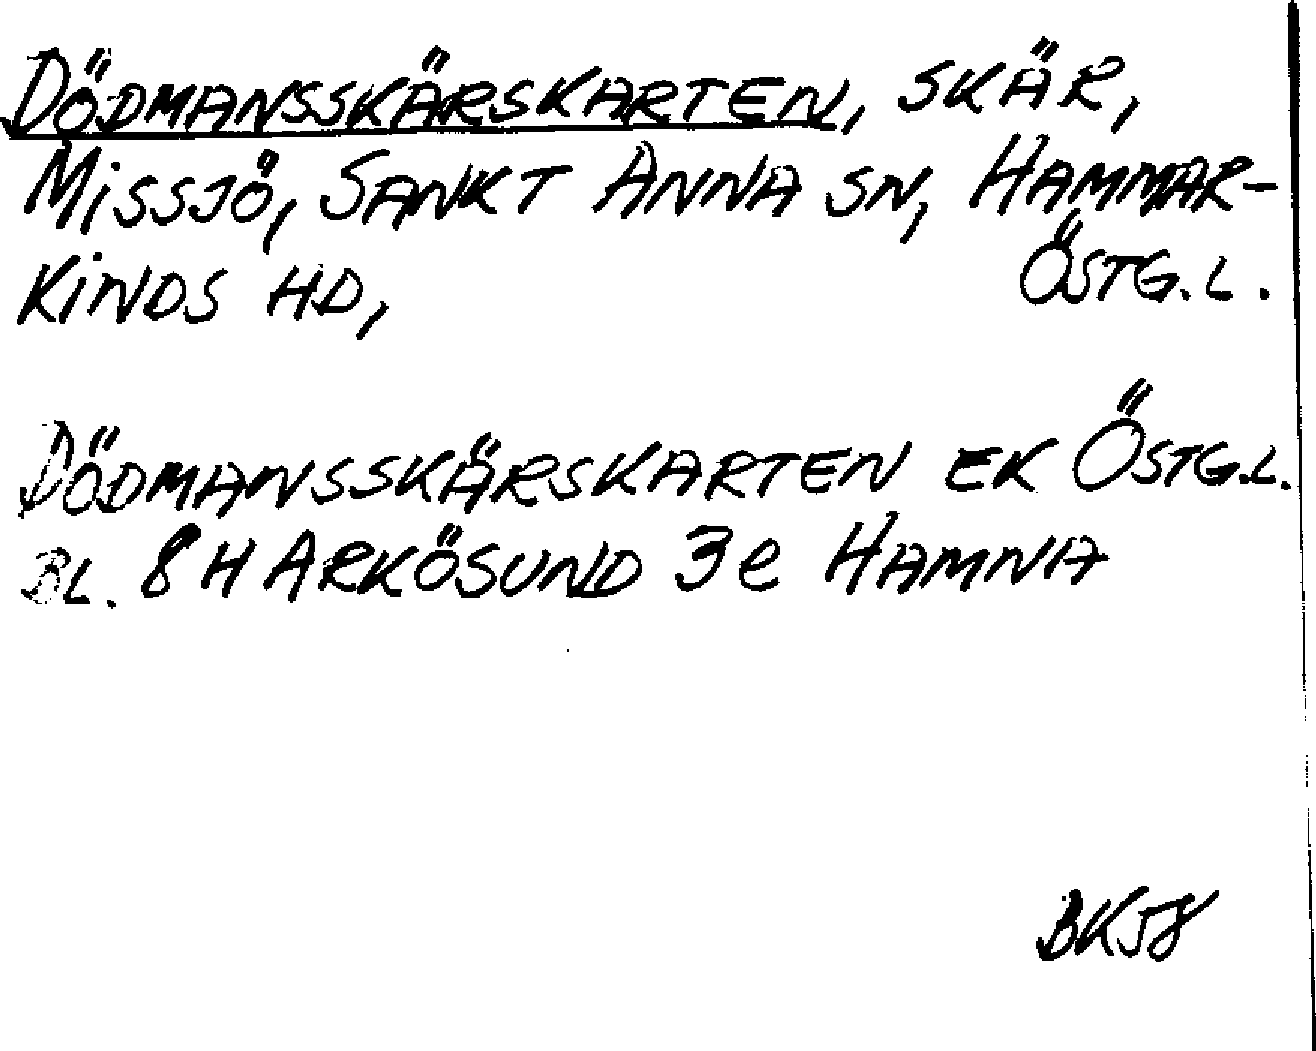 DÖDMANSSKÄRSKARTEN, SKÄR,
MISSJÖ, SANKT ANNA SN, HAMMAR-
KINDS HD, ÖSTG.L.
DÖDMANSSKÄRSKARTEN EK ÖSTG.L.
BL. 8H ARKÖSUND 3e HAMNA
BK58